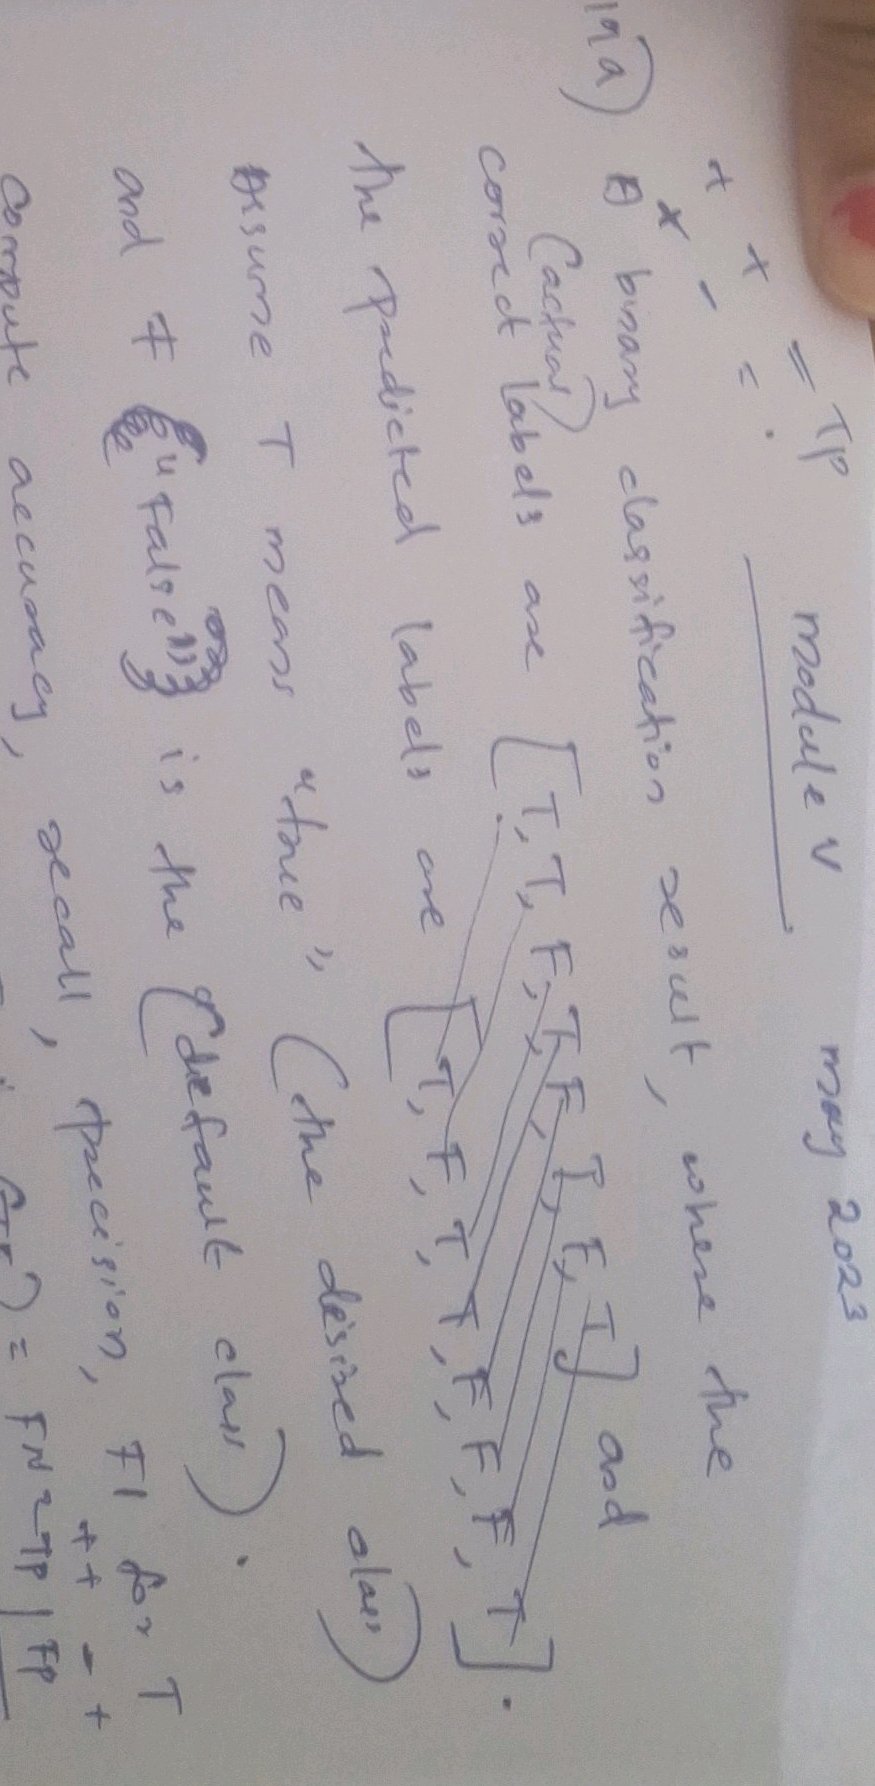 + + = TP
Module V May 2023
x - = .
19 a) A binary classification result, where the
(actual)
correct labels are [T, T, F, T, F, T, F, T] and
the predicted labels are [T, F, T, T, F, F, F, T].
Assume T means "true", (the desired class)
and F "False" is the (default class).
compute accuracy, recall, precision, F1 for T
+ + - +
= FN TP | FP